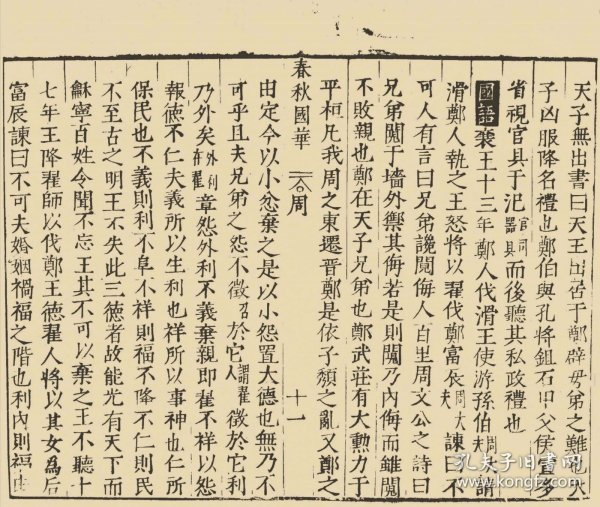 天子無出書曰天王出居于鄭辟母弟之難也天
子凶服降名禮也鄭伯與孔將鉏石甲父侯宣多
省視官具于氾官司器具而後聽其私政禮也
國語襄王十三年鄭人伐滑王使游孫伯周大夫請
滑鄭人執之王怒將以翟伐鄭富辰周大夫諫曰不
可人有言曰兄弟讒鬩侮人百里周文公之詩曰
兄弟鬩于墻外禦其侮若是則鬩乃內侮而雖鬩
不敗親也鄭在天子兄弟也鄭武莊有大勲力于
平桓凡我周之東遷晉鄭是依子頹之亂又鄭之
春秋國華 周 十一
由定今以小忿棄之是以小怨置大德也無乃不
可乎且夫兄弟之怨不徵召於它人謂翟徵於它利
乃外矣外利在翟章怨外利不義棄親即翟不祥以怨
報德不仁夫義所以生利也祥所以事神也仁所
保民也不義則利不阜不祥則福不降不仁則民
不至古之明王不失此三德者故能光有天下而
龢寧百姓令聞不忘王其不可以棄之王不聽十
七年王降翟師以伐鄭王德翟人將以其女為后
富辰諫曰不可夫婚姻禍福之階也利內則福由
孔夫子旧書网
www.kongfz.com